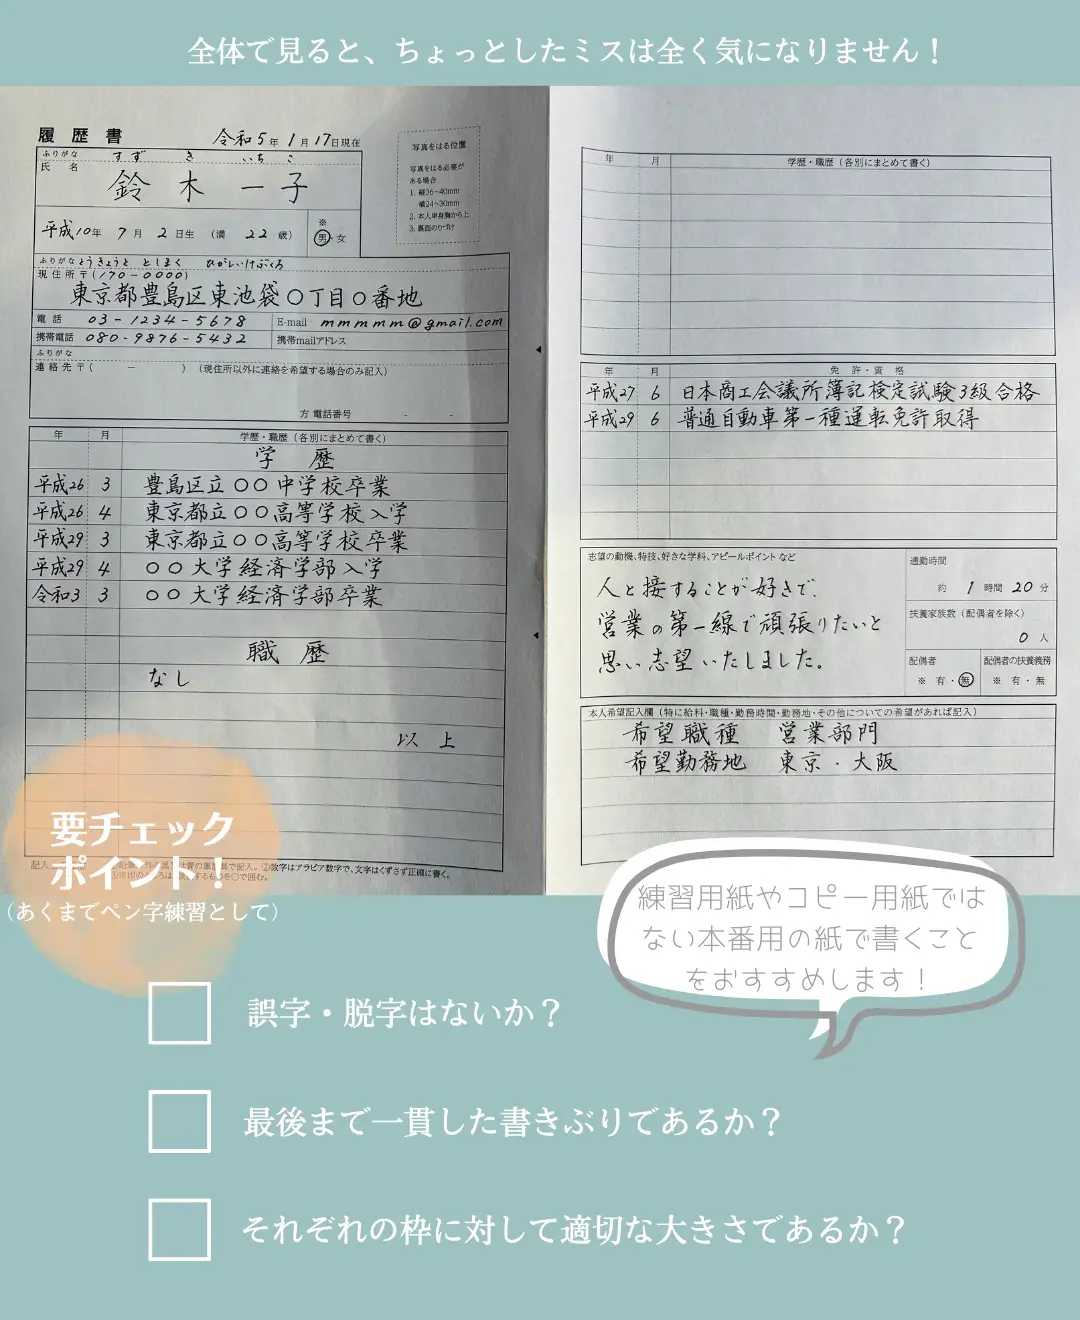 全体で見ると、ちょっとしたミスは全く気になりません！
履歴書 令和5年 1月17日現在
ふりがな すずき いちこ
氏名
鈴木 一子
平成10年 7月 2日生 (満 22歳)
※
男・女
写真をはる位置
写真をはる必要が
ある場合
1. 縦36~40mm
横24~30mm
2. 本人単身胸から上
3. 裏面のりづけ
ふりがな とうきょうと としまく ひがしいけぶくろ
現住所〒(170-0000)
東京都豊島区東池袋〇丁目〇番地
電話 03-1234-5678 E-mail mmmmm@gmail.com
携帯電話 080-9876-5432 携帯mailアドレス
ふりがな
連絡先〒( - ) (現住所以外に連絡を希望する場合のみ記入)
方 電話番号 - -
年 月 学歴・職歴(各別にまとめて書く)
学歴
平成26 3 豊島区立〇〇中学校卒業
平成26 4 東京都立〇〇高等学校入学
平成29 3 東京都立〇〇高等学校卒業
平成29 4 〇〇大学経済学部入学
令和3 3 〇〇大学経済学部卒業
職歴
なし
以上
②数字はアラビア数字で、文字はくずさず正確に書く。
年 月 学歴・職歴(各別にまとめて書く)
年 月 免許・資格
平成27 6 日本商工会議所簿記検定試験3級合格
平成29 6 普通自動車第一種運転免許取得
志望の動機、特技、好きな学科、アピールポイントなど
人と接することが好きで、
営業の第一線で頑張りたいと
思い志望いたしました。
通勤時間
約 1時間20分
扶養家族数(配偶者を除く)
0人
配偶者
※ 有・無
配偶者の扶養義務
※ 有・無
本人希望記入欄(特に給料・職種・勤務時間・勤務地・その他についての希望があれば記入)
希望職種 営業部門
希望勤務地 東京・大阪
要チェック
ポイント！
(あくまでペン字練習として)
練習用紙やコピー用紙では
ない本番用の紙で書くこと
をおすすめします！
誤字・脱字はないか？
最後まで一貫した書きぶりであるか？
それぞれの枠に対して適切な大きさであるか？